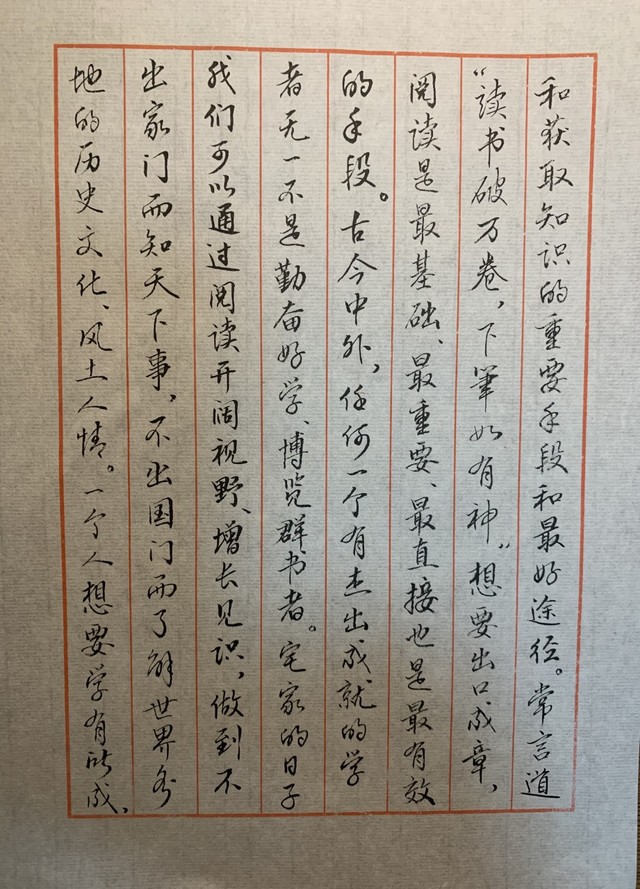 和获取知识的重要手段和最好途径。常言道
“读书破万卷，下笔如有神”想要出口成章，
阅读是最基础、最重要、最直接也是最有效
的手段。古今中外，任何一个有杰出成就的学
者无一不是勤奋好学、博览群书者。宅家的日子
我们可以通过阅读开阔视野、增长见识，做到不
出家门而知天下事，不出国门而了解世界各
地的历史文化、风土人情。一个人想要学有所成，